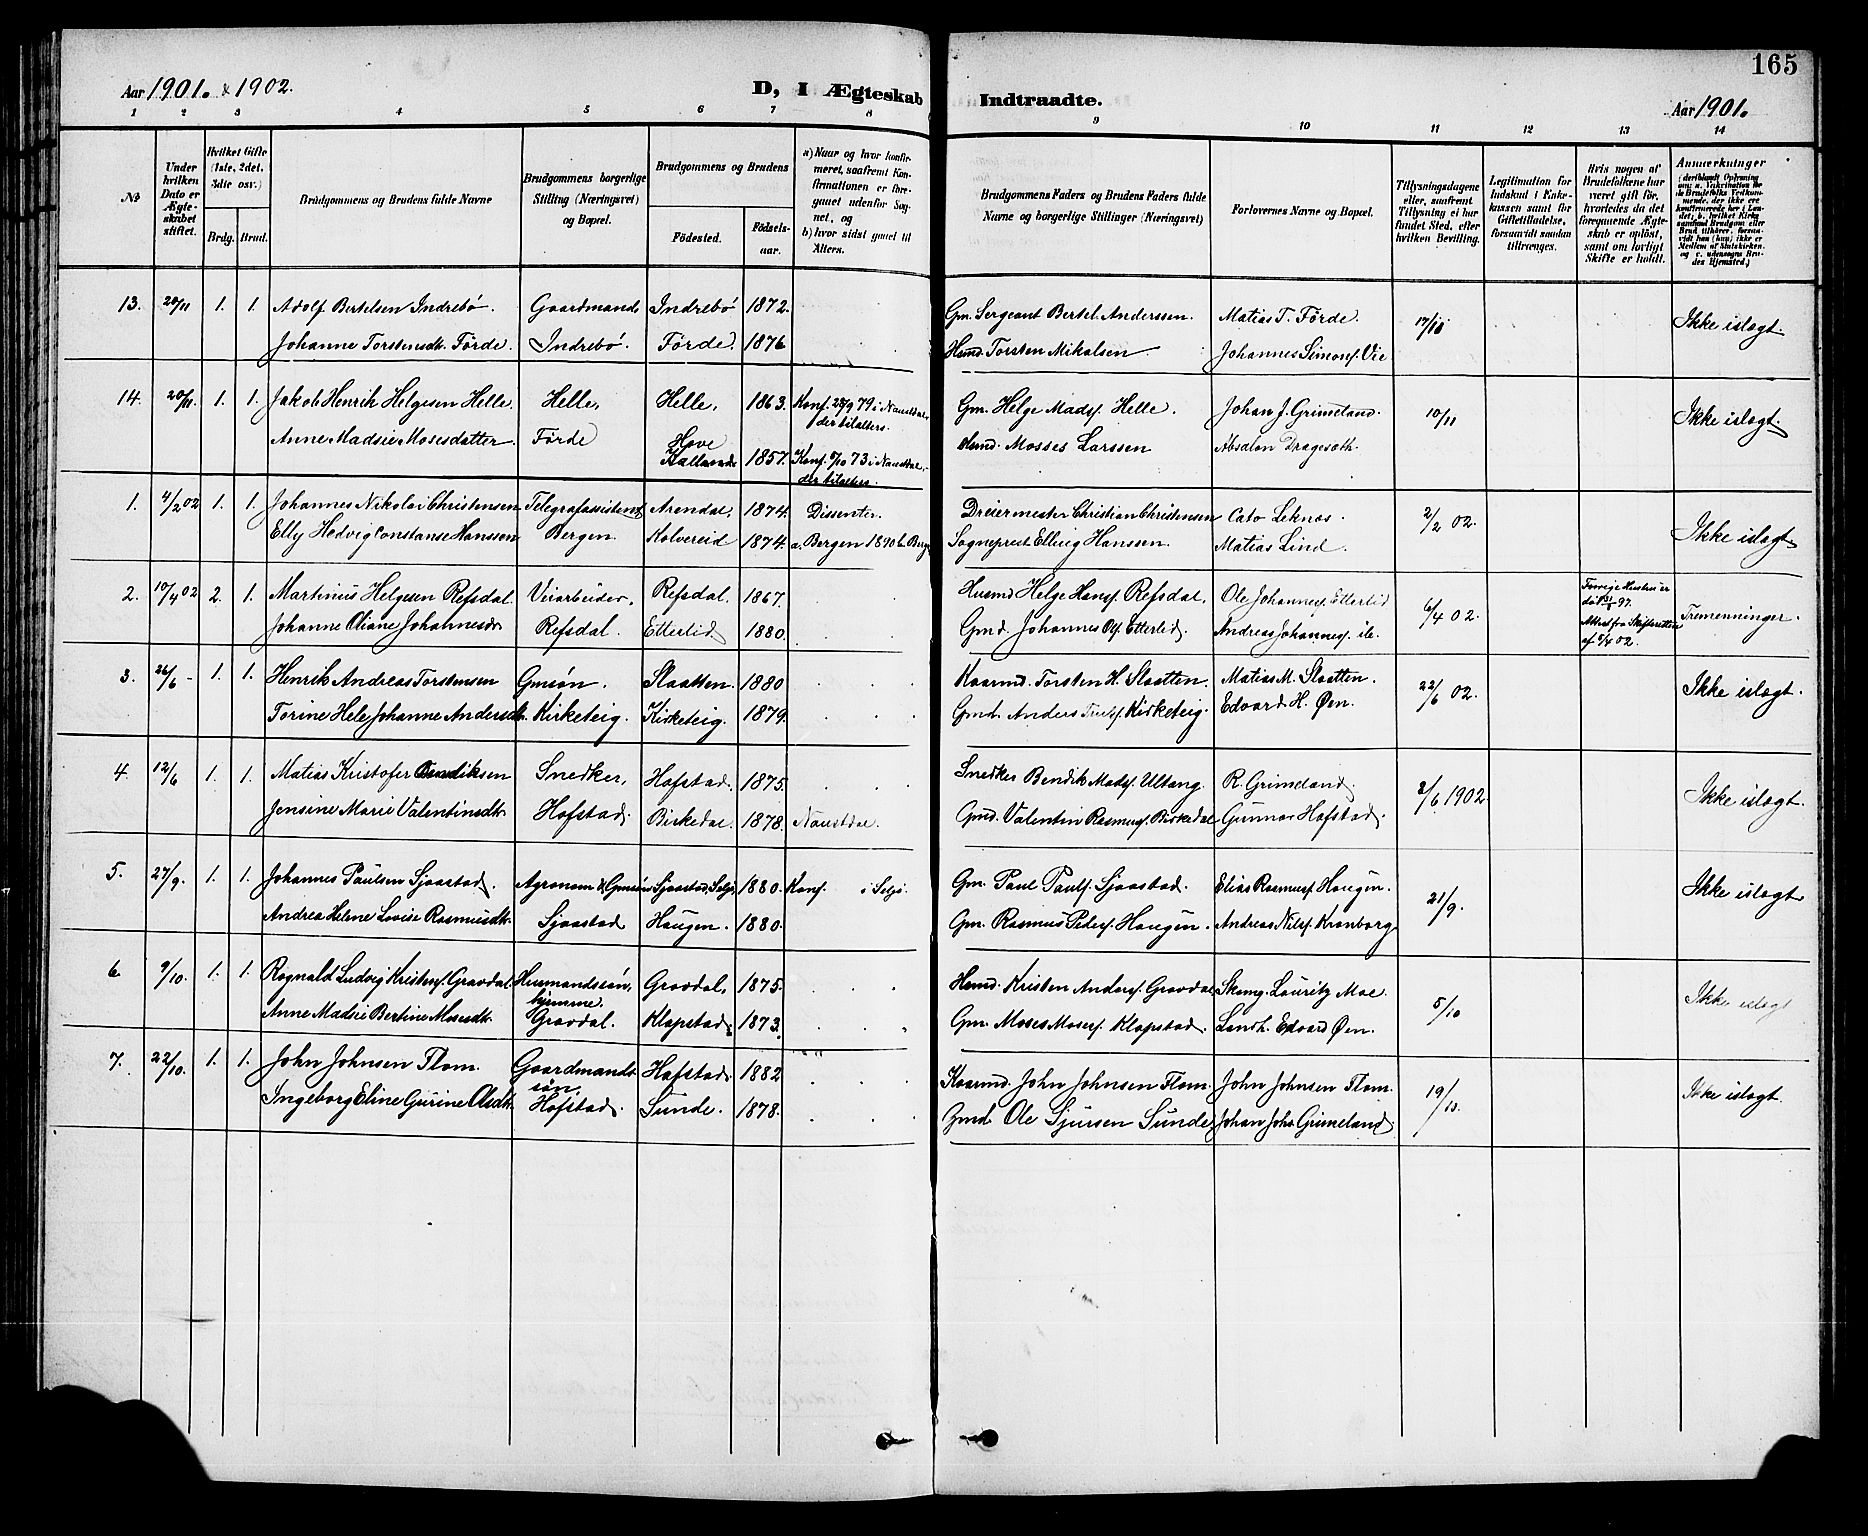 165
Aar 1901. & 1902.
D, I Ægteskab Indtraadte.
Aar 1901.
1 2 3 4 5 6 7 8 9 10 11 12 13 14
No
Under hvilken Dato er Ægteskabet stiftet.
Hvilket Gifte (1ste, 2det, 3die osv.)
Brdg. Brud.
Brudgommens og Brudens fulde Navne
Brudgommens borgerlige Stilling (Næringsvei) og Bopæl.
Brudgommens og Brudens
Födested. Födselsaar.
a) Naar og hvor konfirmeret, saafremt Konfirmationen er foregaaet udenfor Sognet, og
b) hvor sidst gaaet til Alters.
Brudgommens Faders og Brudens Faders fulde Navne og borgerlige Stillinger (Næringsvei)
Forlovernes Navne og Bopæl.
Tillysningsdagene eller, saafremt Tillysning ei har fundet Sted, efter hvilken Bevilling.
Legitimation for Indskud i Enkekassen samt for Giftetilladelse, forsaavidt saadan tiltrænges.
Hvis nogen af Brudefolkene har været gift för, hvorledes da det foregaaende Ægteskab er oplöst, samt om lovligt Skifte er holdt.
Anmærkninger
13. 20/11 1. 1. Adolf Bertelsen Indrebö. Gaardmand Indrebö 1872. Gm. Sergeant Bertel Anderssen. Matias T. Förde. 17/11 Ikke islægt.
Johanne Torstensdt. Förde. Indrebö. Förde. 1876 Husmd. Torsten Mikalsen Johannes Simons. Vie
14. 20/11. 1. 1. Jakob Henrik Helgesen Helle. Helle, Helle, 1863. Konf. 27/9 79 i Naustdal, der tilalters. Gm. Helge Mads. Helle. Johan J. Grimeland. 10/11 Ikke islægt.
Anne Madsie Mosesdatter. Förde Hove 1857. Konf. 5/10 73 i Naustdal, der tilalters. Husmd. Mosses Larssen Absalon Dragesæth.
1. 4/2 02 1. 1. Johannes Nikolai Christensen Telegrafassistent Arendal, 1874. Dissenter. Dreiermester Christian Christensen Cato Leknes. 2/2 02. Ikke islægt
Elly Hedvig Constanse Hanssen Bergen. Kolvereid 1874. a. Bergen 1890 b. Berg. Sogneprest Elling Hanssen. Matias Lind.
2. 10/4 02 2. 1. Martinus Helgesen Refsdal Veiarbeider, Refsdal. 1867. Husmd Helge Hans. Refsdal, Ole Johannes. Etterlid 6/4 02. Forrige Hustru er död 31/ 97. Attest fra Skifteretten af 5/4 02. Tremenninger.
Johanne Oliane Johannesdr Refsdal. Etterlid 1880. Gmd. Johannes Ols. Etterlid. Andreas Johannes. ib.
3. 26/6 - 1. 1. Henrik Andreas Torstensen Gmsön. Slaatten. 1880 Kaarmd. Torsten H. Slaatten. Matias M. Slaatten. 22/6 02. Ikke islægt.
Torine Hele Johanne Andersdt. Kirketeig. Kirketeig. 1879. Gmd. Anders Kirketeig. Edvard H. Øen.
4. 12/6 1. 1. Matias Kristofer Bendiksen Snedker, Hafstad. 1875. Snedker Bendik Mads. Ultang. R. Grimeland. 8/6 1902. Ikke islægt.
Jensine Marie Valentinsdt. Hafstad. Birkedal. 1878. Naustdal. Gmd. Valentin Rasmus. Birkedal Gunnar Hafstad.
5. 27/9. 1. 1. Johannes Paulsen Sjaastad. Agronom & Gmsön Sjaastad, Selje 1880. Konf. i Selje. Gm. Paul Pauls. Sjaastad. Elias Rasmus. Haugen. 21/9. Ikke islægt
Andrea Helene Lovise Rasmusdt. Sjaastad Haugen. 1880. Gm. Rasmus Peders. Haugen. Andreas Nils. Kronborg
6. 9/10. 1. 1. Rognald Ludvig Kristens. Gravdal. Husmandssön, hjemme. Gravdal, 1875. Husmd. Kristen Anders. Gravdal Skomg. Lauritz Moe. 5/10 Ikke islægt
Anne Madsie Bertine Mosesdt. Gravdal. Klopstad. 1873. Gm. Moses Moses. Klopstad. Landh. Edvard Øen.
7. 22/10. 1. 1. John Johnsen Flom. Gaardmands sön Hafstad. 1882 Kaarmd. John Johnsen Flom. John Johnsen Flom. 19/10. Ikke islægt.
Ingeborg Eline Gurine Olsdt. Hafstad. Sunde. 1878. Gmd. Ole Sjursen Sunde. Johan Johs. Grimeland